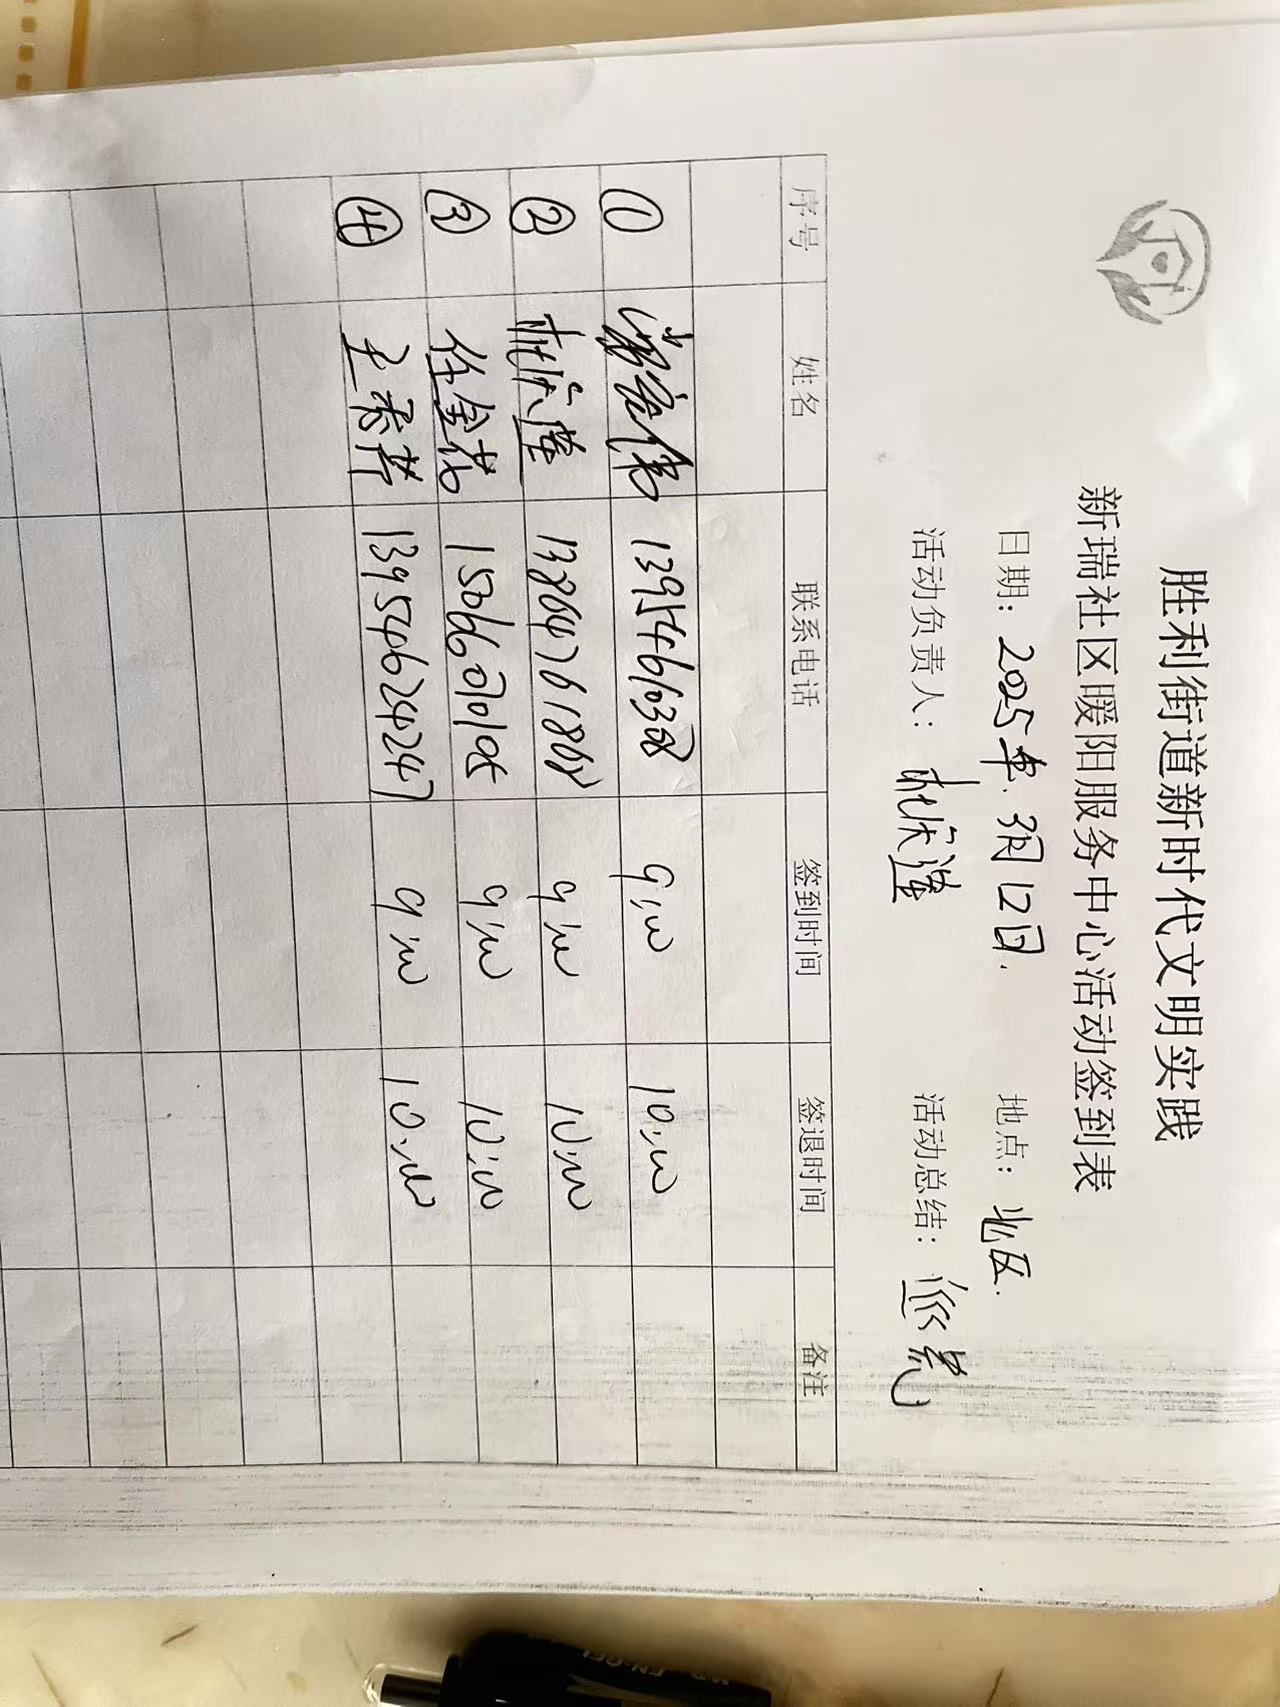 胜利街道新时代文明实践
新瑞社区暖阳服务中心活动签到表
日期：2025年.3月12日. 地点：北区.
活动负责人： 活动总结：巡逻
序号 姓名 联系电话 签到时间 签退时间 备注
① 13954610308 9:00 10:00
② 13864761868 9:00 10:00
③ 任金花 15066070105 9:00 10:00
④ 13954624247 9:00 10:00